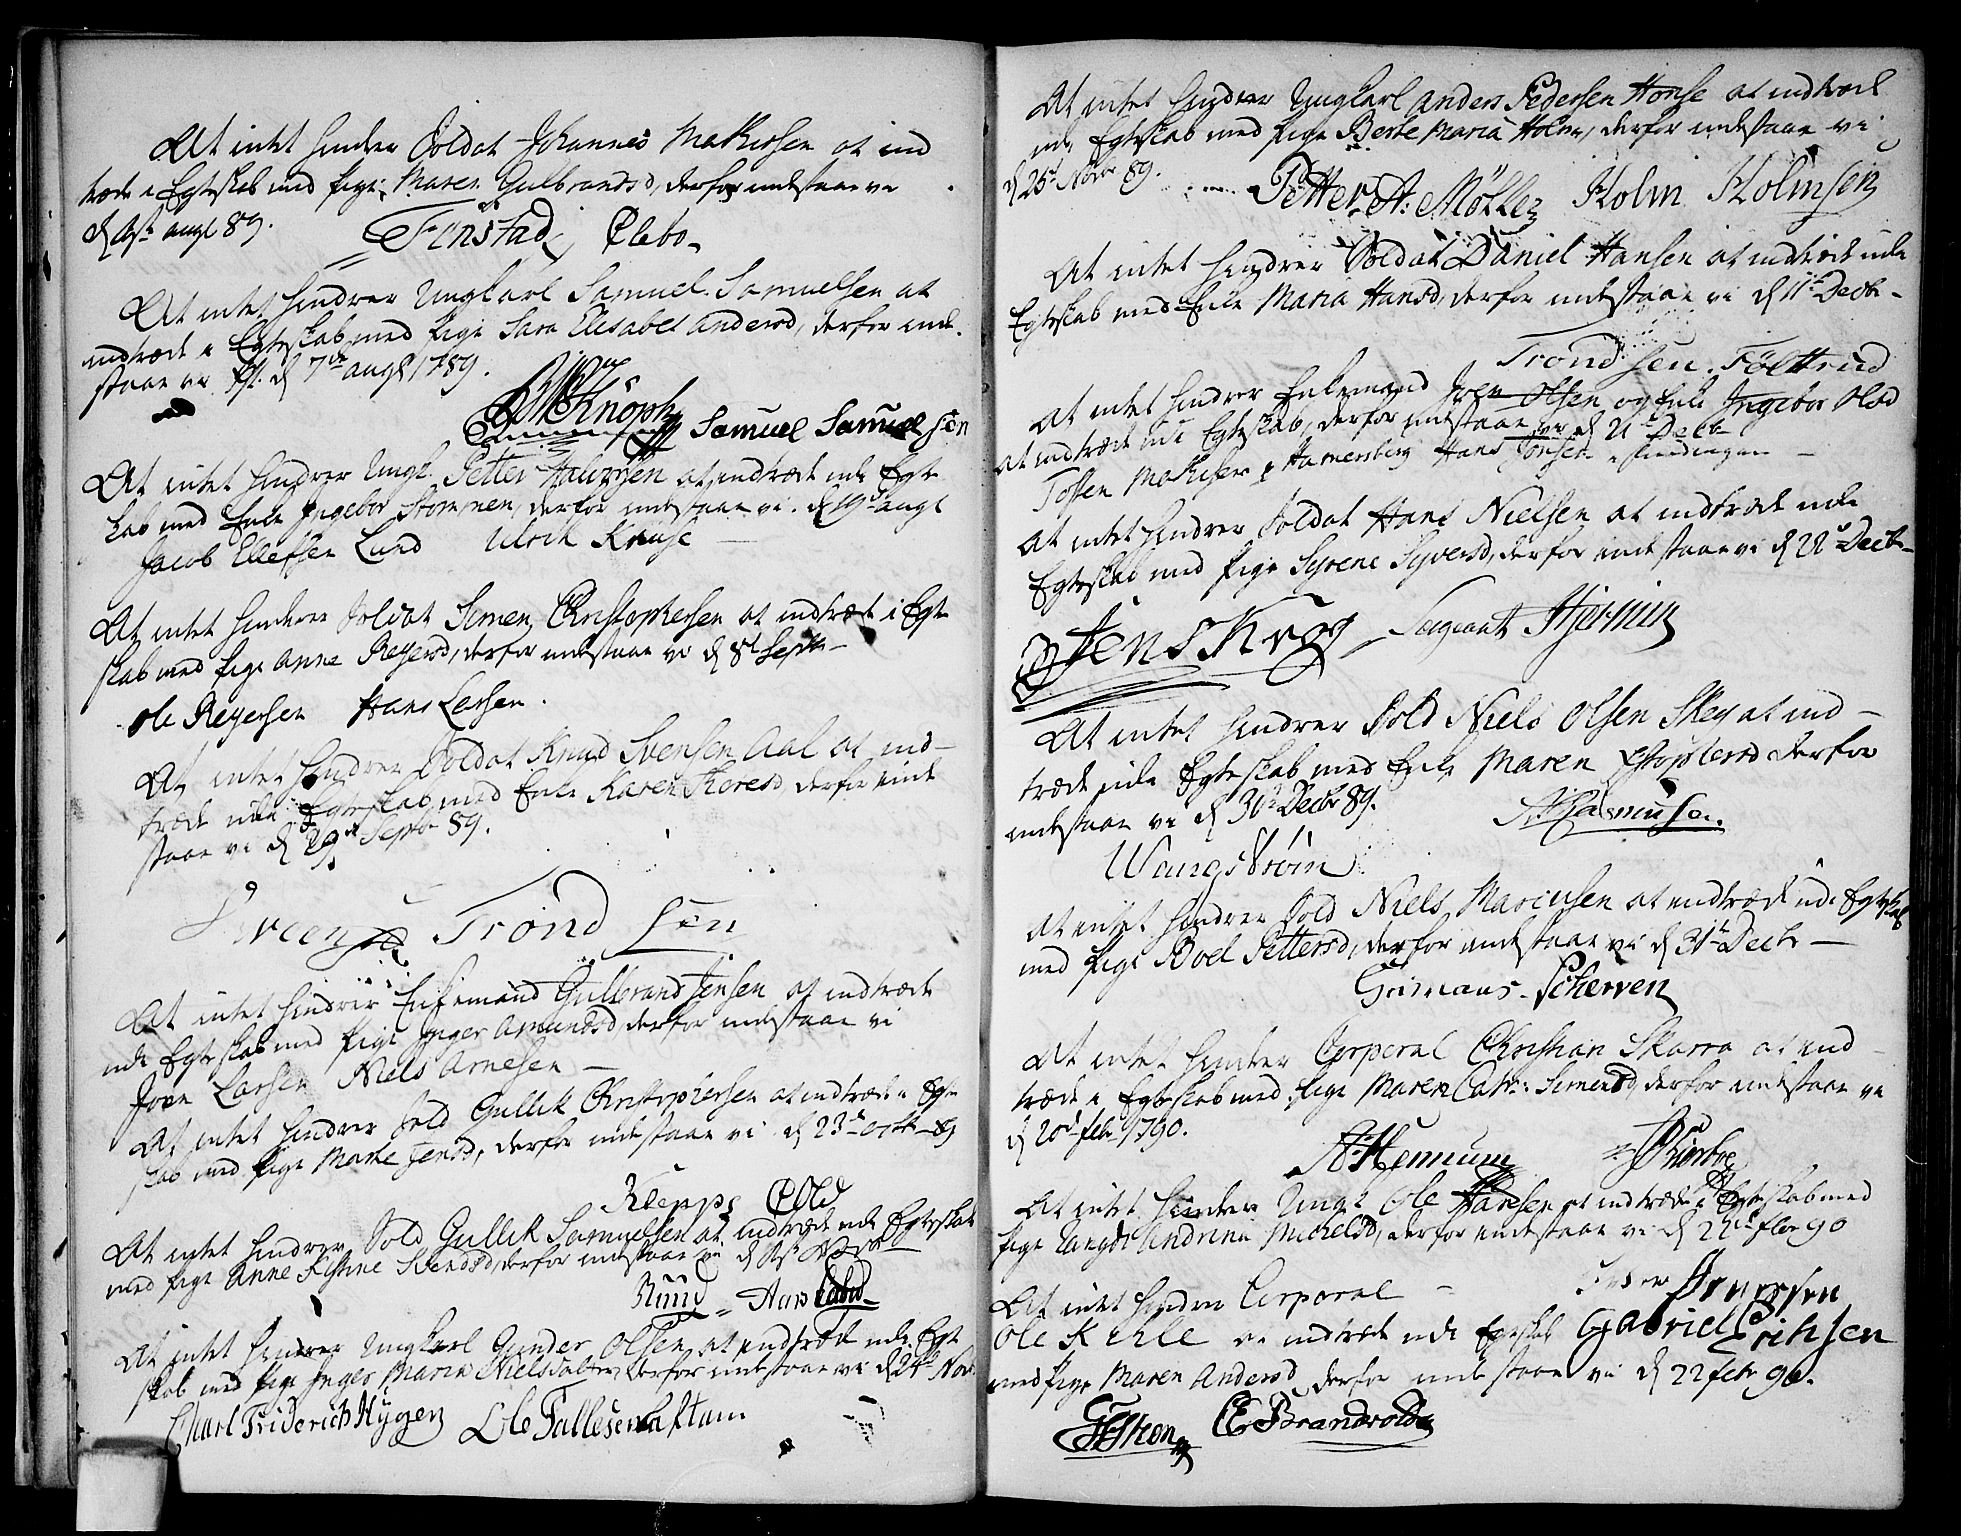 At intet hindrer Soldat Johannes Mathissen at ind
træde i Egteskab med Pige Maren Gulbrandsd, derfor indestaae vi
augt 89.
Finstad Olebo
At intet hindrer Ungkarl Samuel Samuelsen at
indtræde i Egteskab med Pige Sara Elisabet Andersd, derfor inde
staae vi d 7de augt 1789.
Knoph Samuel Samuelsen
At intet hindrer Ungk. Petter Halversen at indtræde udi Egte
skab med Enke Ingebor Strømmen, derfor indestaae vi. d 19de augt
Jacob Ellefsen Lund Ulrik Kruse
At intet hindrer Soldat Simen Christophersen at indtræde i Egte
skab med Pige Anne Reyersd, derfor indestaae vi d 8de Septr
Ole Reyersen Hans Larsen
At intet hindrer Soldat Knud Svensen Aal at ind-
træde udi Egteskab med Enke Karen derfor inde
staae vi d 29de Septr 89.
Sveen Trond sen
At intet hindrer Enkemand Gulbrand Jensen at indtræde
udi Egteskab med Pige Inger Amundsd, derfor indestaae vi
Joen Larsen Niels Arnesen
At intet hindrer Sold Gullik Christophersen at indtræde i Egte
skab med Pige Marte Jensd, derfor indestaae vi d 23de octr 89
Kleppe Old
At intet hindrer Sold Gullik Samuelsen at indtræde udi Egteskab
med Pige Anne Kistine Svendsd, derfor indestaae vi d Novr
Ruud
At intet hindrer Ungkarl Gunder Olsen at indtræde udi Egte
skab med Pige Inger Maria Nielsdatter, derfor indestaae vi d 24de Nov.
Charl Friderich Hygen Ole Tallesen Taftum
At intet hindrer Ungkarl Anders Pedersen Honse at indtræde
udi Egteskab med Pige Berte Maria Holm, derfor indestaae vi
d 25de Novr 89.
Petter A: Møller Holm Holmsen
At intet hindrer Soldat Daniel Hansen at indtræde udi
Egteskab med Enke Maria Hansd, derfor indestaae vi d 11te Decbr
Trond sen. Følstrud
At intet hindrer Enkemand Iver Olsen og Enke Ingebor Olsd
at indtræde udi Egteskab, derfor indestaae vi d 21de Decbr
Tosten Mathisen Hamersberg Hans Jonsen
At intet hindrer Soldat Hans Nielsen at indtræde udi
Egteskab med Pige Syrene Syversd, derfor indestaae vi d 22de Decbr
Jens Krog Sergeant Hjermin
At intet hindrer Sold Niels Olsen Skey at ind-
træde udi Egteskab med Enke Maren Christophersd derfor
indestaae vi d 30de Decbr 89.
Rasmussen.
Wangstrøm
At intet hindrer Sold Niels Mariusen at indtræde udi Egteskab
med Pige Boel Pettersd, derfor indestaae vi d 31te Decbr
Grimaus Scherven
At intet hindrer Corporal Christian Skarra at ind
træde i Egteskab med Pige Maren Catr: Simensd, derfor indestaae vi
d 20de febr 1790.
Hennum
At intet hindrer Ungk Ole Hansen at indtræde i Egteskab med
Pige Andrine Mickelsd, derfor indestaae vi d 22de febr 90
Iversen
At intet hindrer Corporal
Ole Kihle at indtræde udi Egteskab Gabriel Erichsen
med Pige Maren Andersd derfor indestaae vi d 22 febr 90.
Brandvold